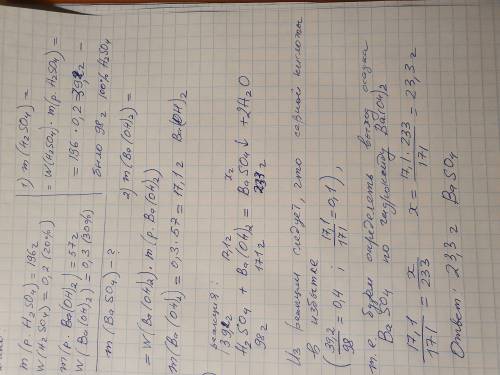 m(р. H₂SO₄) = 196 г
W(H₂SO₄) = 0,2 (20%)
m(р. Ba(OH)₂) = 57 г
W(Ba(OH)₂) = 0,3 (30%)
m(BaSO₄) - ?
1) m(H₂SO₄) =
= W(H₂SO₄) · m(р. H₂SO₄) =
= 196 · 0,2 = 39,2 г –
было 98 г 100% H₂SO₄
2) m(Ba(OH)₂) =
= W(Ba(OH)₂) · m(р. Ba(OH)₂)
m(Ba(OH)₂) = 0,3 · 57 = 17,1 г Ba(OH)₂
реакция:
39,2 г 17,1 г x г
H₂SO₄ + Ba(OH)₂ = BaSO₄↓ + 2H₂O
98 г 171 г 233 г
Из реакции следует, что серной кислоты
в избытке
(39,2/98 = 0,4 ; 17,1/171 = 0,1),
т.е. будем определять выход осадка
BaSO₄ по гидроксиду Ba(OH)₂
17,1/171 = x/233 x = 17,1 · 233/171 = 23,3 г
Ответ: 23,3 г BaSO₄